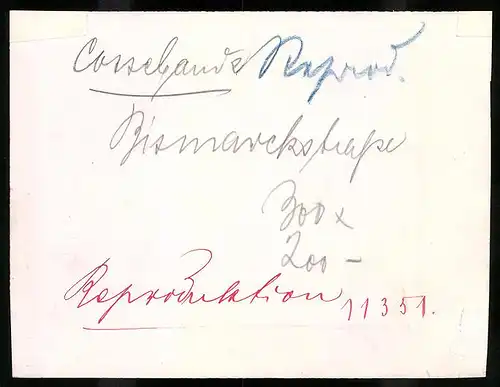 Cossebaude Reprod.
Bismarckstraße
300 x
200 –
Reproduktion 11351.